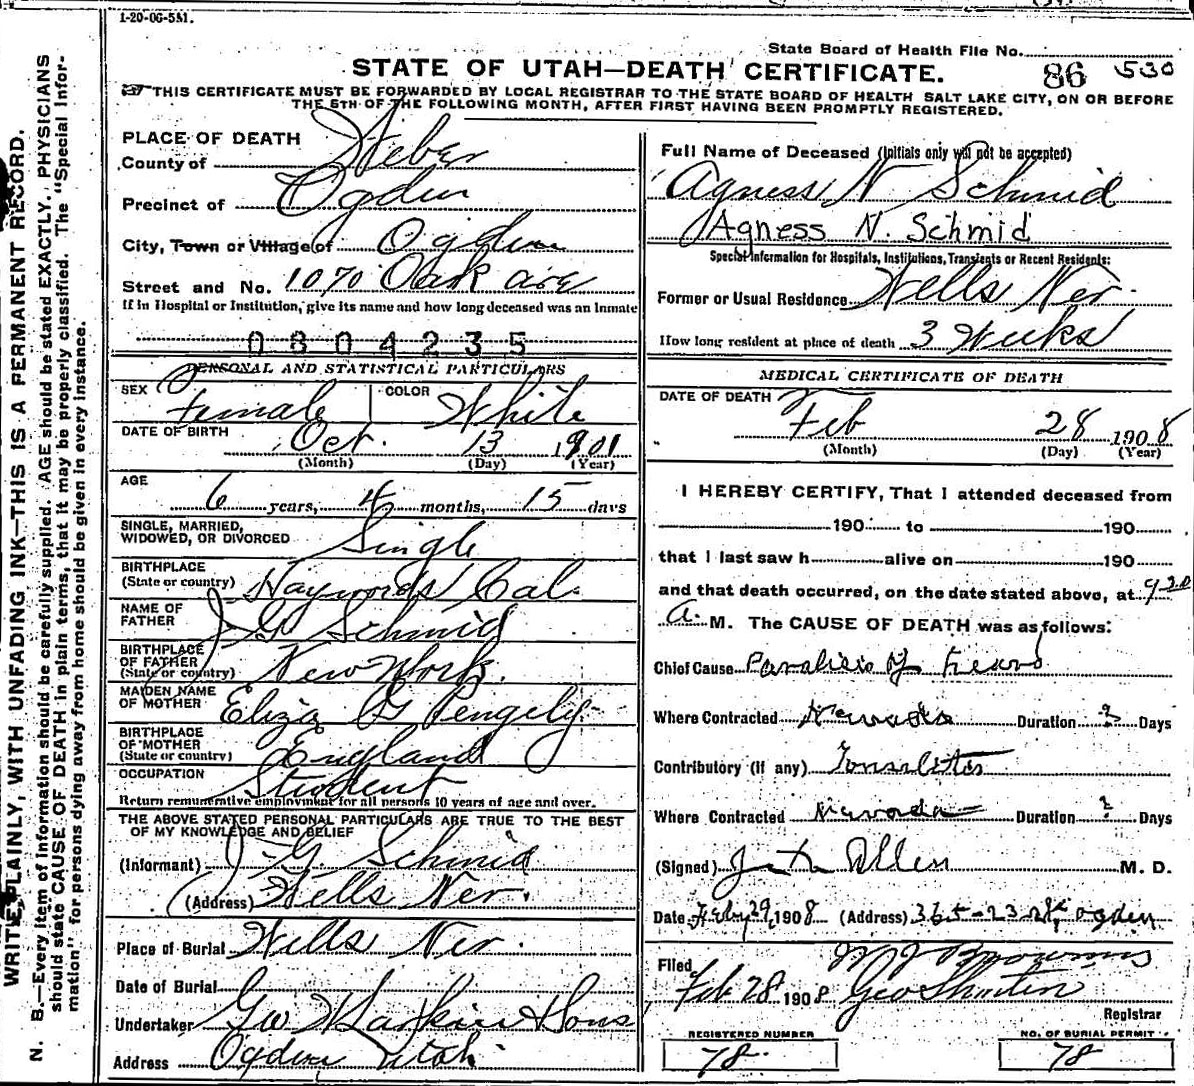 1-20-06-5M.
State Board of Health File No.
STATE OF UTAH—DEATH CERTIFICATE. 86 530
THIS CERTIFICATE MUST BE FORWARDED BY LOCAL REGISTRAR TO THE STATE BOARD OF HEALTH SALT LAKE CITY, ON OR BEFORE
THE 5TH OF THE FOLLOWING MONTH, AFTER FIRST HAVING BEEN PROMPTLY REGISTERED.
WRITE PLAINLY, WITH UNFADING INK—THIS IS A PERMANENT RECORD.
N. B.—Every item of information should be carefully supplied. AGE should be stated EXACTLY. PHYSICIANS
should state CAUSE OF DEATH in plain terms, that it may be properly classified. The "Special Infor-
mation" for persons dying away from home should be given in every instance.
PLACE OF DEATH
County of Weber
Precinct of Ogden
City, Town or Village of Ogden
Street and No. 1070 Oak ave
If in Hospital or Institution, give its name and how long deceased was an inmate
0804235
PERSONAL AND STATISTICAL PARTICULARS
SEX Female COLOR White
DATE OF BIRTH Oct. 13 1901
(Month) (Day) (Year)
AGE
6 years, 4 months, 15 days
SINGLE, MARRIED,
WIDOWED, OR DIVORCED Single
BIRTHPLACE
(State or country) Haywords Cal.
NAME OF
FATHER J. G. Schmid
BIRTHPLACE
OF FATHER
(State or country) New York.
MAIDEN NAME
OF MOTHER Eliza G Pengely
BIRTHPLACE
OF MOTHER
(State or country) England
OCCUPATION Student
Return remunerative employment for all persons 10 years of age and over.
THE ABOVE STATED PERSONAL PARTICULARS ARE TRUE TO THE BEST
OF MY KNOWLEDGE AND BELIEF
(Informant) J. G. Schmid
(Address) Wells Nev.
Place of Burial Wells Nev.
Date of Burial
Undertaker Geo W Larkin & Sons
Address Ogden Utah
Full Name of Deceased (Initials only will not be accepted)
Agness N Schmid
Agness N. Schmid
Special Information for Hospitals, Institutions, Transients or Recent Residents:
Former or Usual Residence Wells Nev.
How long resident at place of death 3 Weeks
MEDICAL CERTIFICATE OF DEATH
DATE OF DEATH
Feb 28 1908
(Month) (Day) (Year)
I HEREBY CERTIFY, That I attended deceased from
190 to 190
that I last saw h alive on 190
and that death occurred, on the date stated above, at 9-20
A. M. The CAUSE OF DEATH was as follows:
Chief Cause Paralisis of heart
Where Contracted Nevada Duration ? Days
Contributory (if any) Tonsilitis
Where Contracted Nevada Duration ? Days
(Signed) Allen M. D.
Date Feby 29, 1908 (Address) 365-23 St, Ogden
Filed
Feb 28 1908
Registrar
REGISTERED NUMBER NO. OF BURIAL PERMIT
78. 78